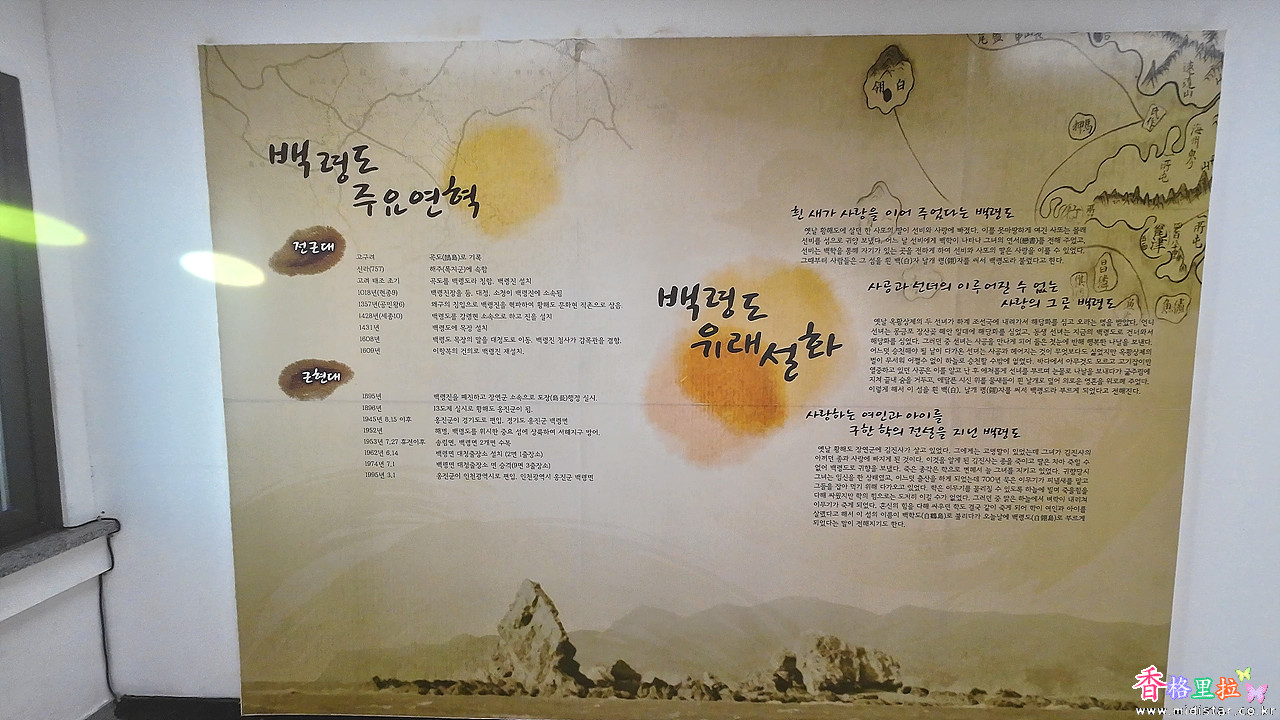 백령도
주요연혁
전근대
고구려 곡도(鵠島)로 기록
신라(757) 해주(폭지군)에 속함
고려 태조 초기 곡도를 백령도라 칭함. 백령진 설치
1018년(현종9) 백령진장을 둠. 대청, 소청이 백령진에 소속됨
1357년(공민왕6) 왜구의 침입으로 백령진을 혁파하여 황해도 문화현 직촌으로 삼음
1428년(세종10) 백령도를 강령현 소속으로 하고 진을 설치
1431년 백령도에 목장 설치
1608년 백령도 목장의 말을 대청도로 이동. 백령진 첨사가 감목관을 겸함.
1609년 이항복의 건의로 백령진 재설치.
근현대
1895년 백령진을 폐진하고 장연군 소속으로 도장(島長)행정 실시.
1896년 13도제 실시로 황해도 옹진군이 됨.
1945년 8.15 이후 옹진군이 경기도로 편입. 경기도 옹진군 백령면
1952년 해병, 백령도를 위시한 중요 섬에 상륙하여 서해지구 방어.
1953년 7.27 휴전이후 송림면, 백령면 2개면 수복
1962년 6.14 백령면 대청출장소 설치 (2면 1출장소)
1974년 7.1 백령면 대청출장소 면 승격(9면 3출장소)
1995년 3.1 옹진군이 인천광역시로 편입. 인천광역시 옹진군 백령면
백령도
유래설화
흰 새가 사랑을 이어 주었다는 백령도
옛날 황해도에 살던 한 사또의 딸이 선비와 사랑에 빠졌다. 이를 못마땅하게 여긴 사또는 몰래
선비를 섬으로 귀양 보냈다. 어느 날 선비에게 백학이 나타나 그녀의 연서(戀書)를 전해 주었고,
선비는 백학을 통해 자기가 있는 곳을 알려주게 하여 선비와 사또의 딸은 사랑을 이룰 수 있었다.
그때부터 사람들은 그 섬을 흰 백(白)자, 날개 령(翎)자를 써서 백령도라 불렀다고 한다.
사공과 선녀의 이루어질 수 없는
사랑의 그곳 백령도
옛날 옥황상제의 두 선녀가 하계 조선국에 내려가서 해당화를 심고 오라는 명을 받았다. 언니
선녀는 몽금포 장산곶 해안 일대에 해당화를 심었고, 동생 선녀는 지금의 백령도로 건너와서
해당화를 심었다. 그러던 중 선녀는 사공을 만나게 되어 젊은 첫눈에 반해 행복한 나날을 보낸다.
어느덧 승천해야 될 날이 다가온 선녀는 사공과 헤어지는 것이 무엇보다도 싫었지만 옥황상제의
벌이 무서워 어쩔수 없이 하늘로 승천할 수밖에 없었다. 바다에서 아무것도 모르고 고기잡이만
열중하고 있던 사공은 이를 알고 난 후 애처롭게 선녀를 부르며 눈물로 나날을 보내다가 굶주림에
지쳐 끝내 숨을 거두고, 애달픈 사신 위를 물새들이 흰 날개로 덮어 외로운 영혼을 위로해 주었다.
이렇게 해서 이 섬을 흰 백(白), 날개 령(翎)자를 써서 백령도라 부르게 되었다고 전해진다.
사랑하는 여인과 아이를
구한 학의 전설을 지닌 백령도
옛날 황해도 장연군에 김진사가 살고 있었다. 그에게는 고명딸이 있었는데 그녀가 김진사의
아끼던 종과 사랑에 빠지게 된 것이다. 이것을 알게 된 김진사는 종을 죽이고 딸은 차마 죽일 수
없어 백령도로 귀향을 보냈다. 죽은 총각은 학으로 변해서 늘 그녀를 지키고 있었다. 귀향당시
그녀는 임신을 한 상태였고, 어느덧 출산을 하게 되었는데 700년 묵은 이무기가 피냄새를 맡고
그들을 잡아 먹기 위해 다가오고 있었다. 학은 이무기를 물리칠 수 있도록 하늘에 빌며 죽을힘을
다해 싸웠지만 학의 힘으로는 도저히 이길 수가 없었다. 그러던 중 맑은 하늘에서 벼락이 내리쳐
이무기가 죽게 되었다. 혼신의 힘을 다해 싸우던 학도 결국 같이 죽게 되어 학이 여인과 아이를
살렸다고 해서 이 섬의 이름이 백학도(白鶴島)로 불리다가 오늘날에 백령도(白翎島)로 부르게
되었다는 말이 전해지기도 한다.
白翎
香格里拉
www.ministar.co.kr